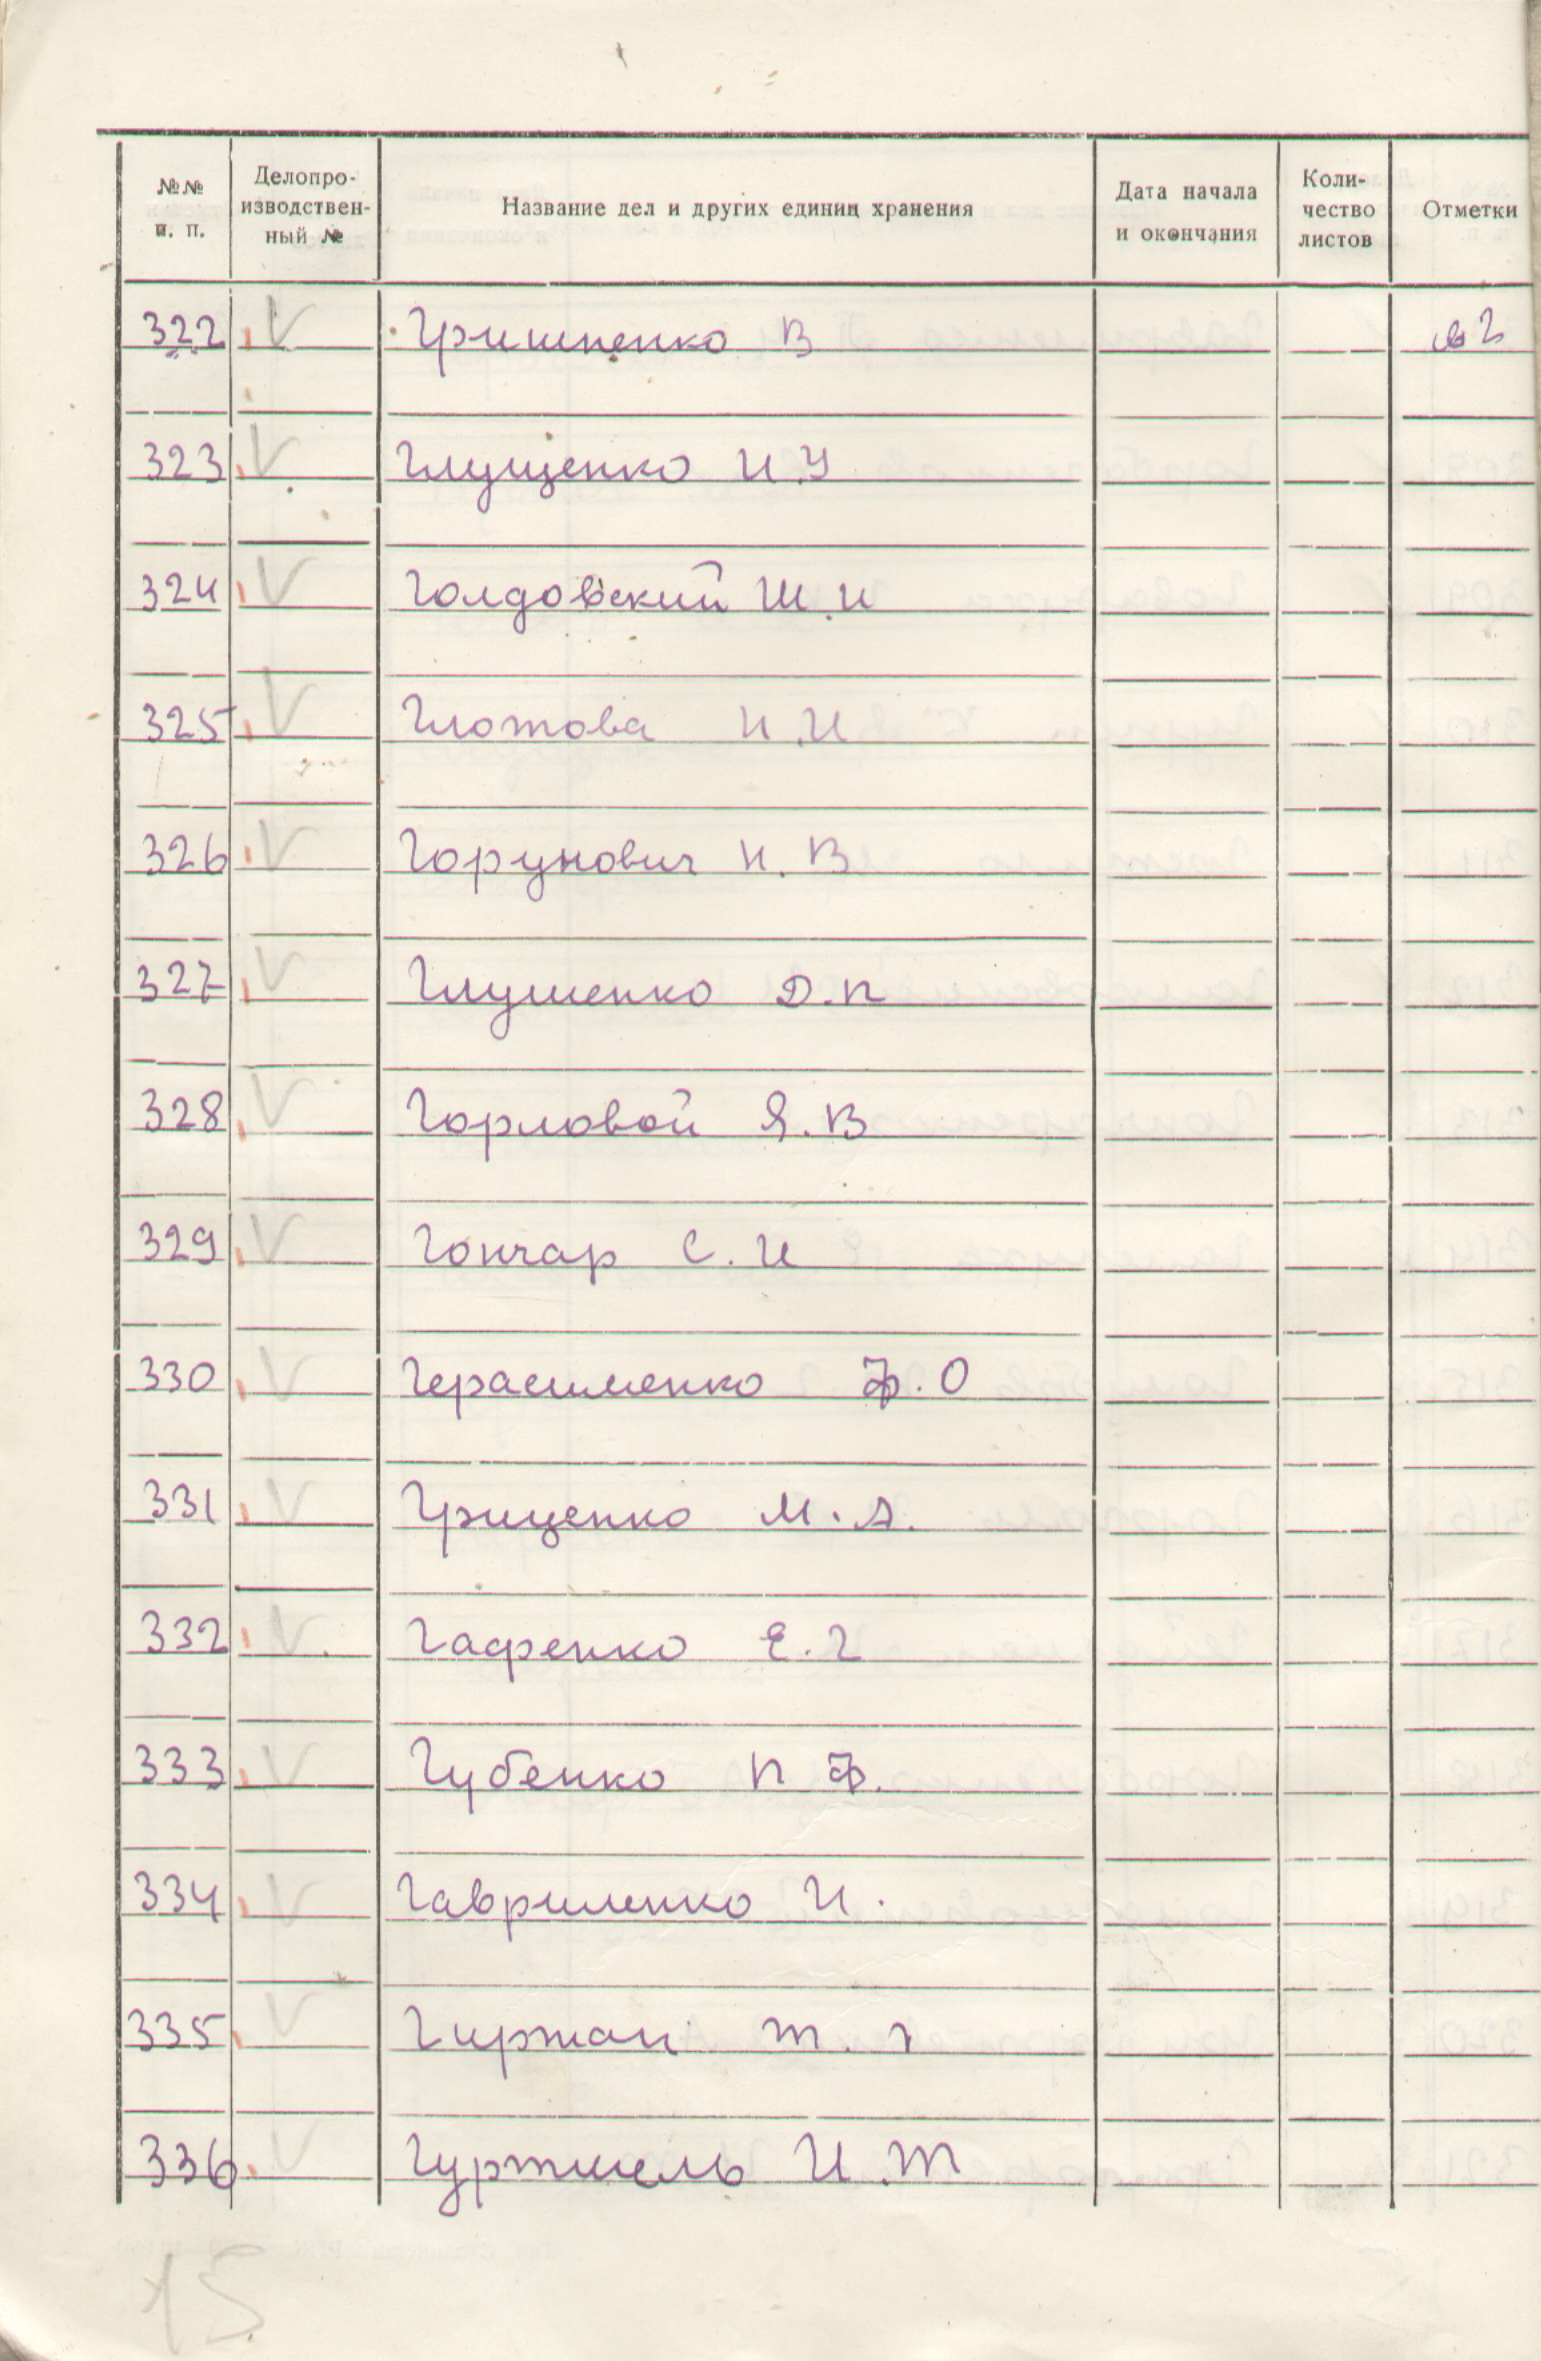 №№ п. п. Делопроизводственный № Название дел и других единиц хранения Дата начала и окончания Количество листов Отметки
322 V Гришненко В св 2
323 V Глущенко И.У
324 V Голдовский Ш.И
325 V Глотова Н.И
326 V Горунович Н.В
327 V Глушенко Д.П
328 V Горловой Я.В
329 V Гончар С.И
330 V Герасименко Ф.О
331 V Гриценко М.А.
332 V Гафенко Е.Г
333 V Губенко П Ф.
334 V Гавриленко И.
335 V Гиржан Т. Г
336 V Гуртмель И.Т
15